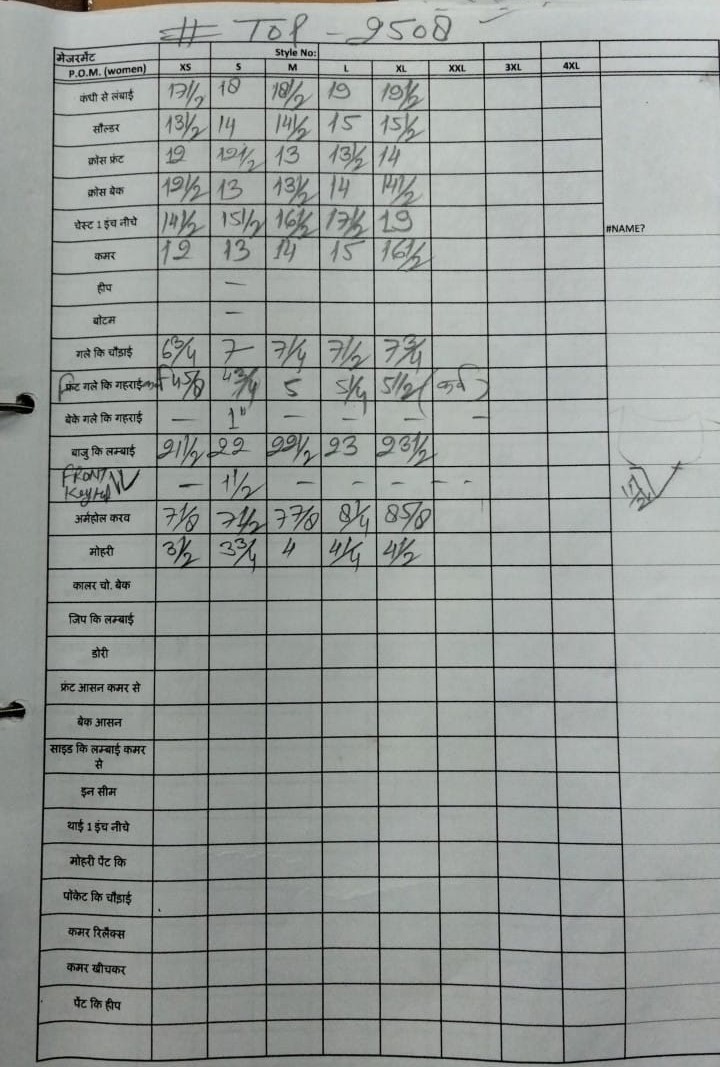 # TOP - 2508
मेजरमेंट Style No:
P.O.M. (women) XS S M L XL XXL 3XL 4XL
कंधी से लंबाई 17 1/2 18 18 1/2 19 19 1/2
सौल्डर 13 1/2 14 14 1/2 15 15 1/2
क्रोस फ्रंट 12 12 1/2 13 13 1/2 14
क्रोस बेक 12 1/2 13 13 1/2 14 14 1/2
चेस्ट 1 इंच नीचे 14 1/2 15 1/2 16 1/2 17 1/2 19 #NAME?
कमर 12 13 14 15 16 1/2
हीप —
बोटम —
गले कि चौडाई 6 3/4 7 7 1/4 7 1/2 7 3/4
फ्रंट गले कि गहराई 4 5/8 4 3/4 5 5 1/4 5 1/2 (कर्व)
बेके गले कि गहराई — 1" — — — —
बाजु कि लम्बाई 21 1/2 22 22 1/2 23 23 1/2
FRONT — 1 1/2 - - - - -
अर्महोल करव 7 1/8 7 1/2 7 7/8 8 1/4 8 5/8
मोहरी 3 1/2 3 3/4 4 4 1/4 4 1/2
कालर चो. बेक
जिप कि लम्बाई
डोरी
फ्रंट आसन कमर से
बेक आसन
साइड कि लम्बाई कमर
से
इन सीम
थाई 1 इंच नीचे
मोहरी पेंट कि
पोकेट कि चौड़ाई
कमर रिलैक्स
कमर खीचकर
पेंट कि हीप